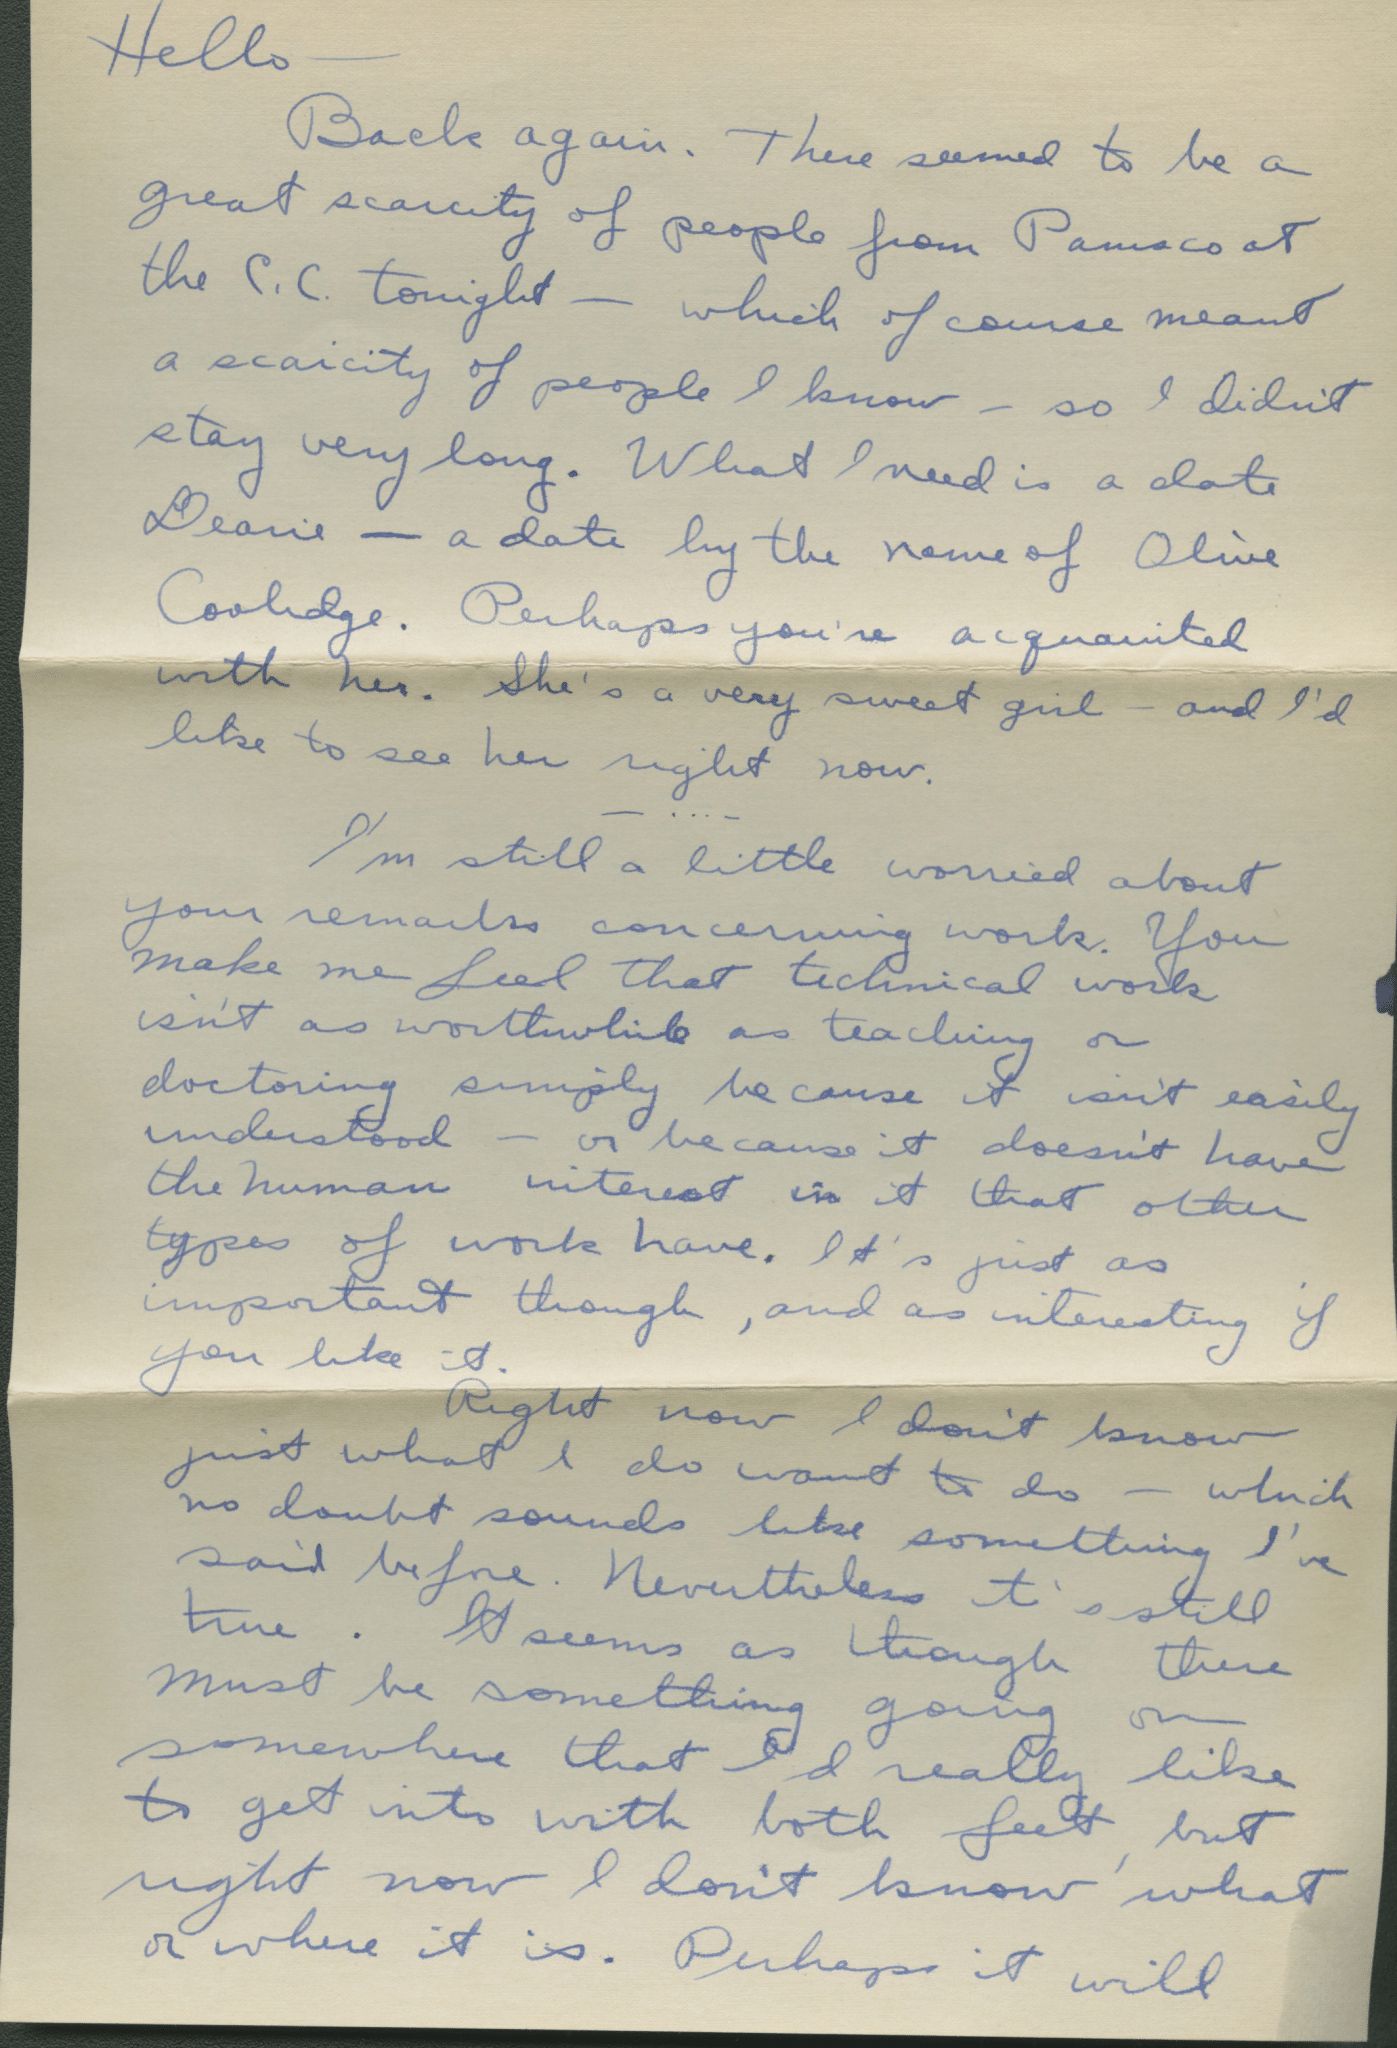 Hello —
Back again. There seemed to be a
great scarcity of people from Pamsco at
the C.C. tonight — which of course meant
a scarcity of people I know — so I didn't
stay very long. What I need is a date
Dearie — a date by the name of Olive
Coolidge. Perhaps you're acquainted
with her. She's a very sweet girl — and I'd
like to see her right now.
— ... –
I'm still a little worried about
your remarks concerning work. You
make me feel that technical work
isn't as worthwhile as teaching or
doctoring simply because it isn't easily
understood — or because it doesn't have
the human interest in it that other
types of work have. It's just as
important though, and as interesting if
you like it.
Right now I don't know
just what I do want to do — which
no doubt sounds like something I've
said before. Nevertheless it's still
true. It seems as though there
must be something going on
somewhere that I'd really like
to get into with both feet, but
right now I don't know what
or where it is. Perhaps it will